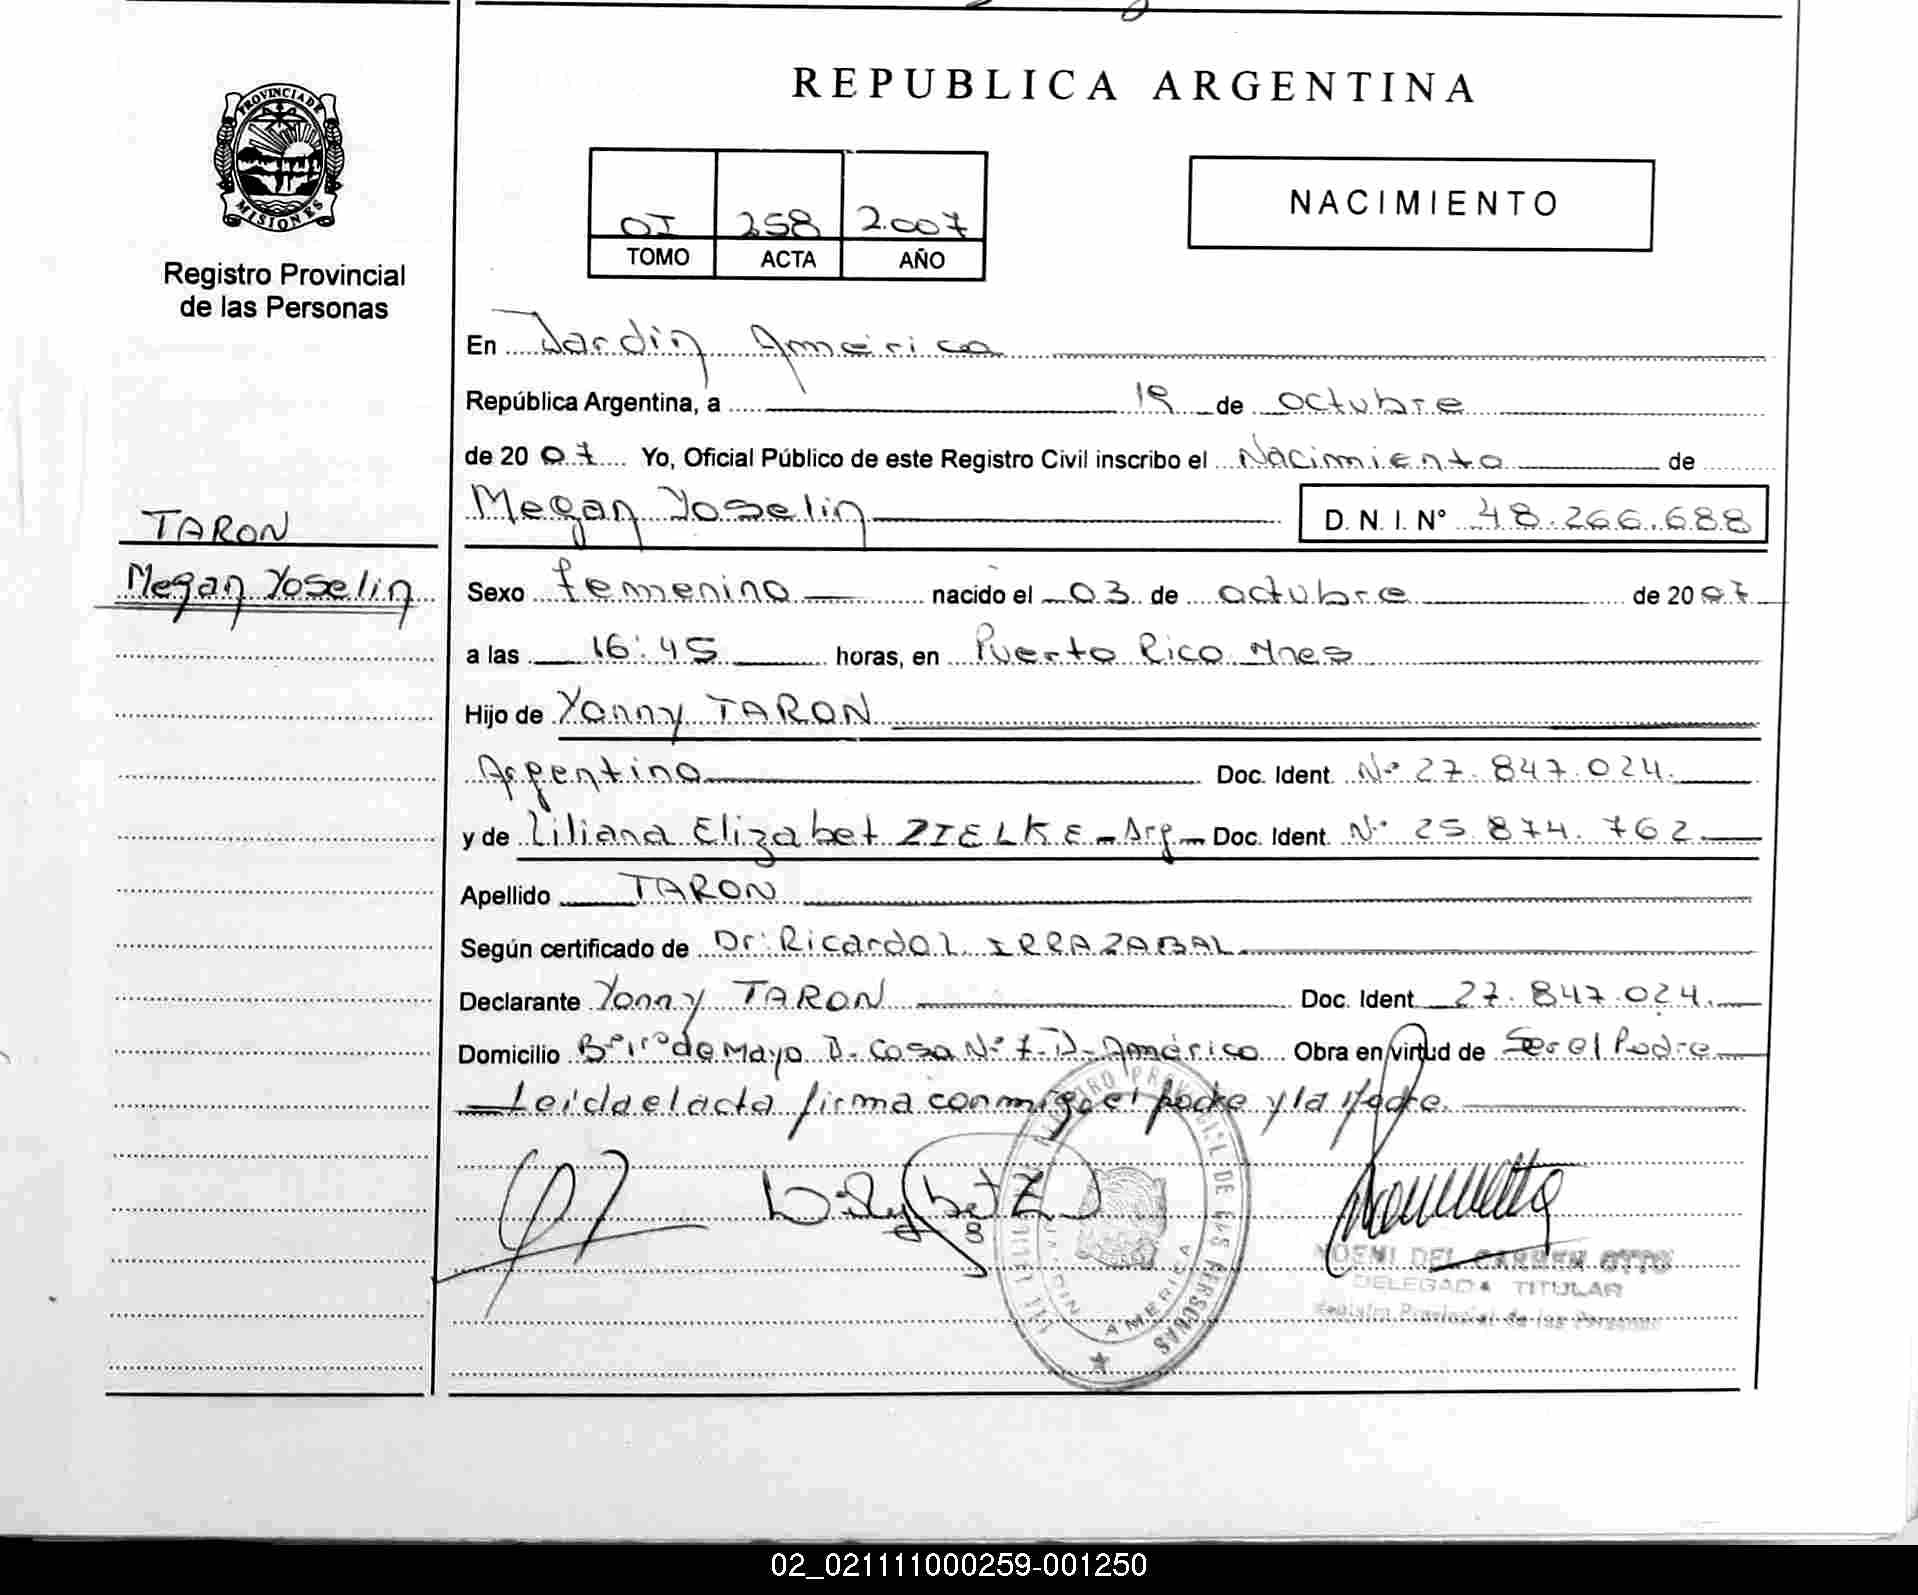 REPUBLICA ARGENTINA
PROVINCIA DE
MISIONES
Registro Provincial
de las Personas
OI 258 2.007
TOMO ACTA AÑO
NACIMIENTO
En Jardin América
República Argentina, a 19 de octubre
de 20 07 Yo, Oficial Público de este Registro Civil inscribo el Nacimiento de
Megan Yoselin D. N. I. N° 48.266.688
TARON
Megan Yoselin
Sexo femenino nacido el 03 de octubre de 20 07
a las 16:45 horas, en Puerto Rico Mnes
Hijo de Yonny TARON
Argentino Doc. Ident. N° 27.847.024.
y de Liliana Elizabet ZIELKE - Arg - Doc. Ident. N° 25.874.762
Apellido TARON
Según certificado de Dr: Ricardo L. IRRAZABAL
Declarante Yonny TARON Doc. Ident. 27.847.024.
Domicilio B° 1ro de Mayo D. Casa N° 7-J-América Obra en virtud de Ser el Padre
Leida el acta firma conmigo el padre y la Madre.
REGISTRO PROVINCIAL DE LAS PERSONAS
JARDIN AMERICA
NOEMI DEL CARMEN OTTO
DELEGADA TITULAR
Registro Provincial de las Personas
02_021111000259-001250